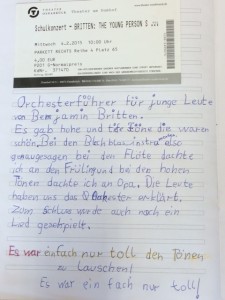 THEATER
OSNABRÜCK
Theater am Domhof
Schulkonzert - BRITTEN: THE YOUNG PERSON'S ...
Mittwoch 4.2.2015 10:00 Uhr
PARKETT RECHTS Reihe 6 Platz 63
4,00 EUR
Orchesterführer für junge Leute
von Benjamin Britten.
Es gab hohe und tiefe Töne die waren
schön. Bei den Blechblasinstrumente
genaugesagen bei den Flöte dachte
ich an den Frühling und bei den hohen
Tönen dachte ich an Opa. Die Leute
haben uns das Orchester erklärt.
Zum Schluss wurde auch noch ein
Lied gespielt.
Es war einfach nur toll den Tönen
zu lauschen!
Es war ein fach nur toll!